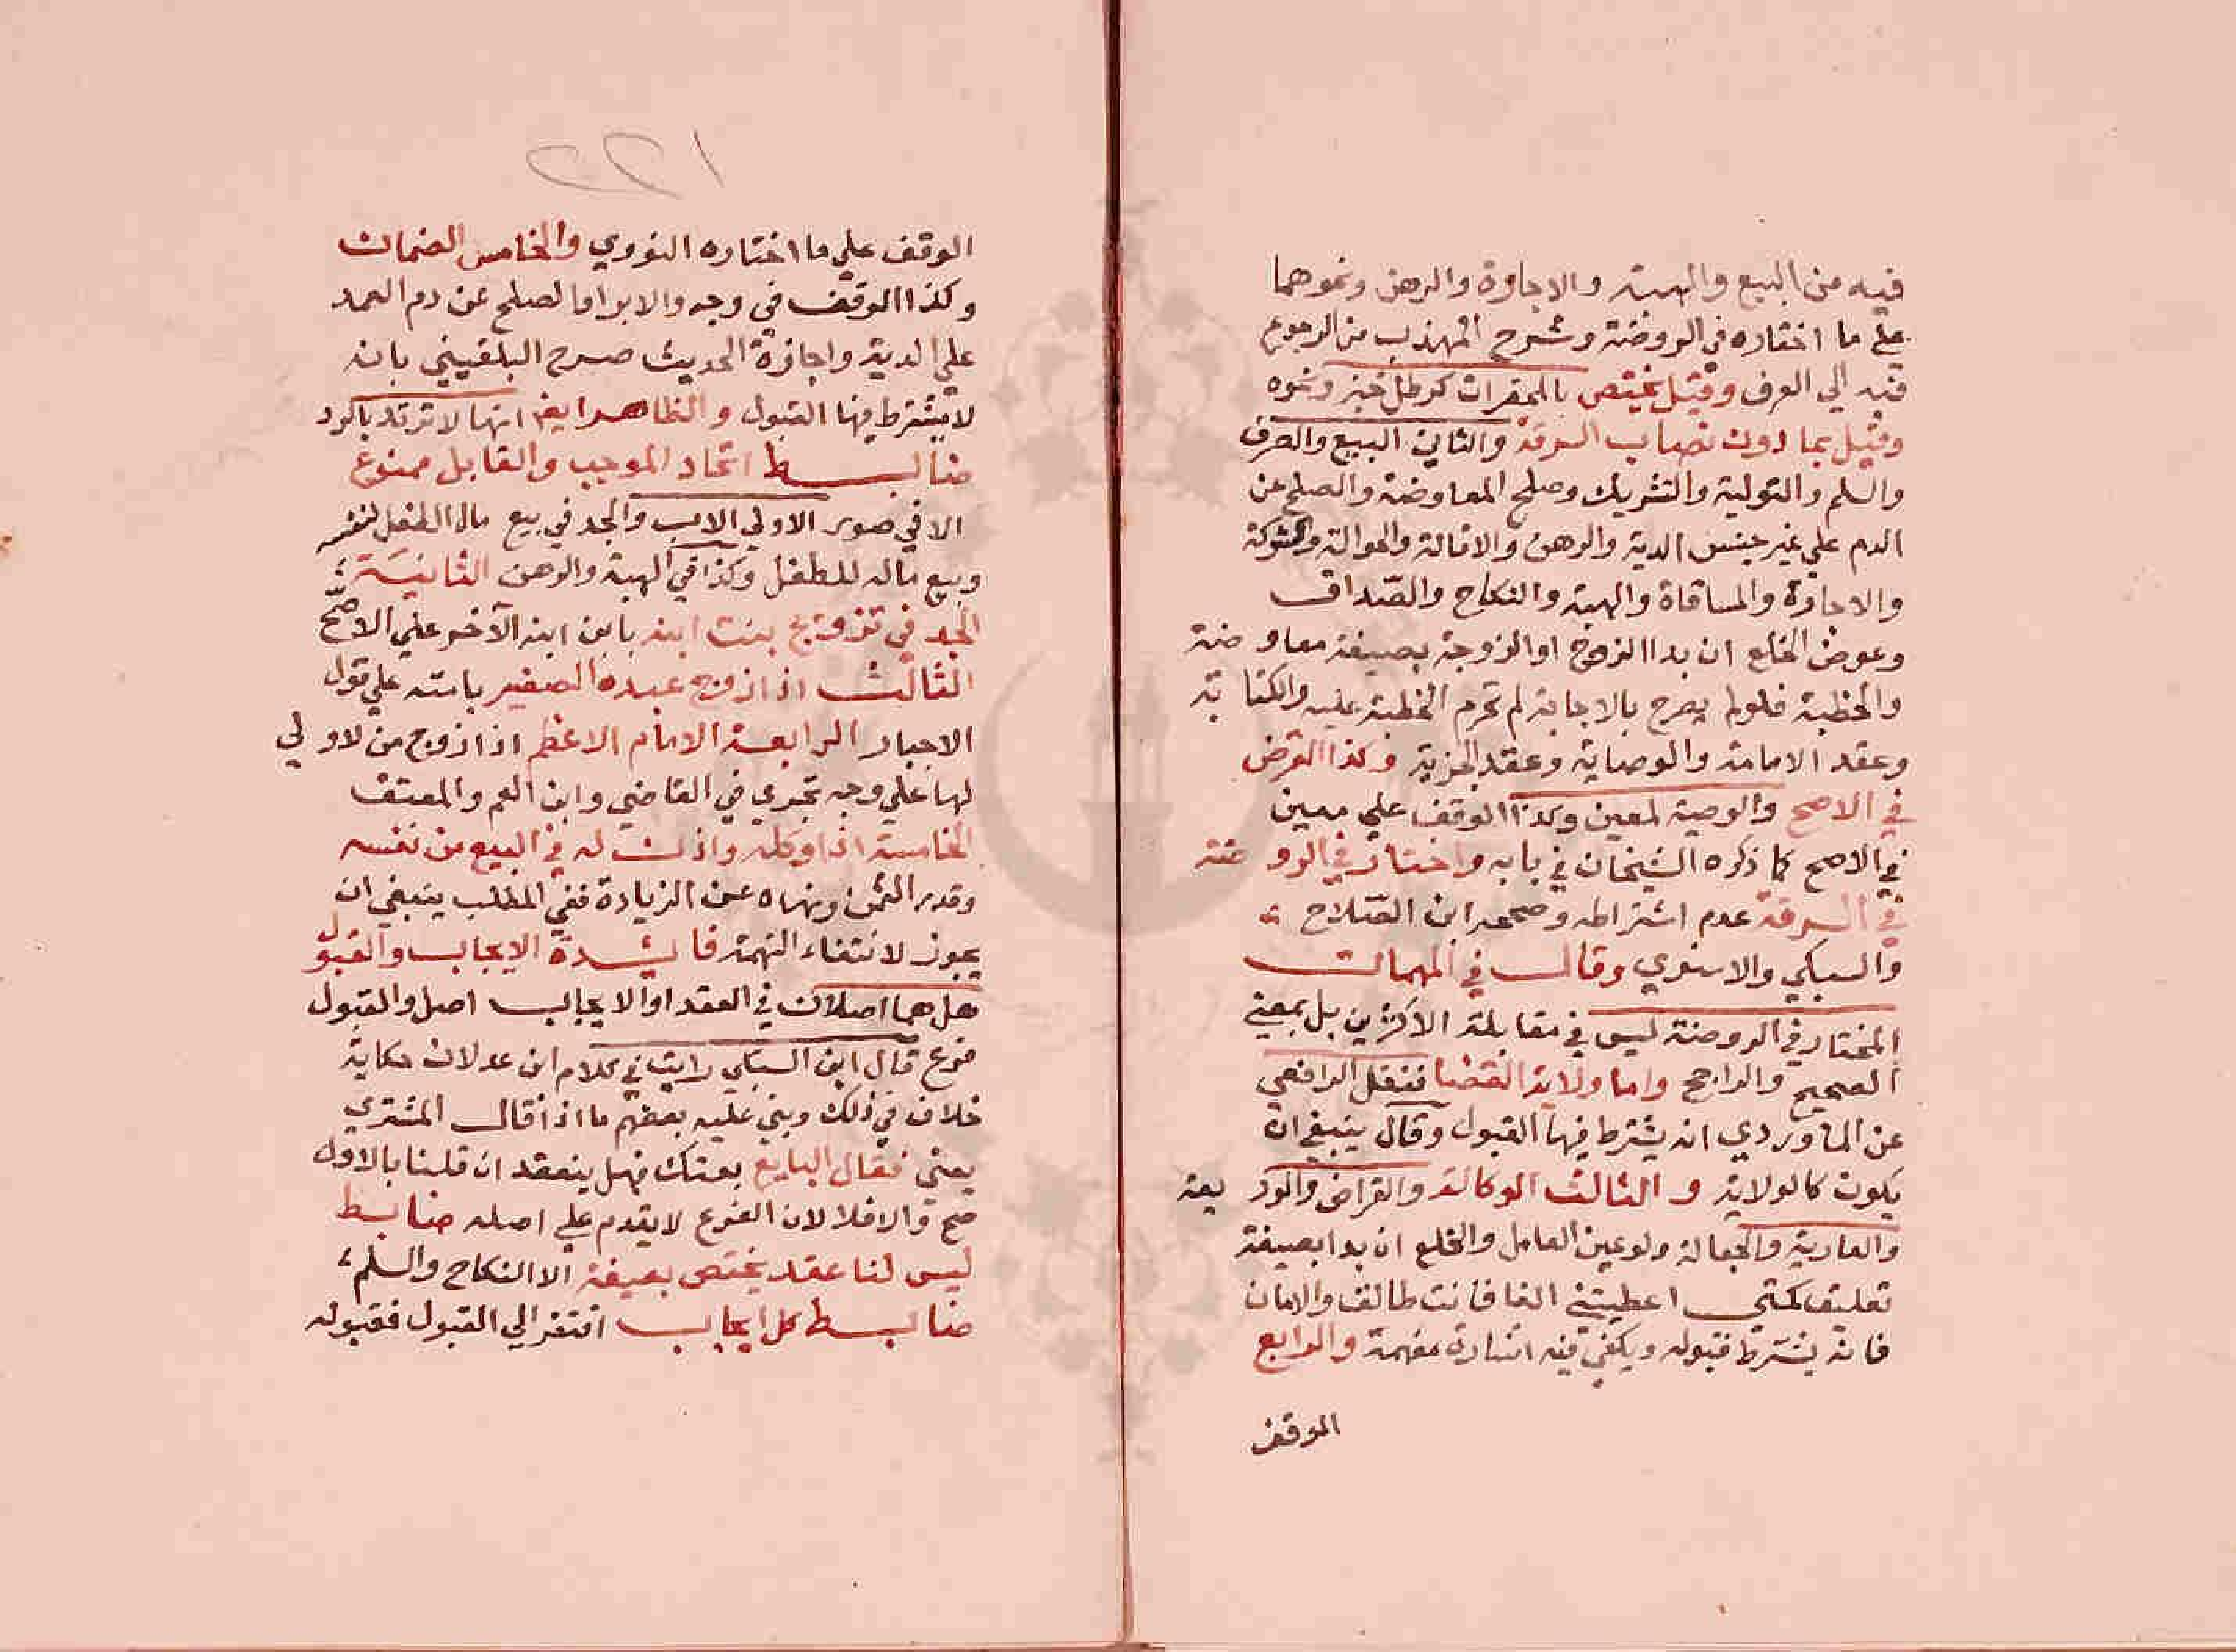 فيه من البيع والهبة والاجارة والرهن ونحوهما
على ما اختاره في الروضة وشرح المهذب من الرجوع
فيه الي العرف وقيل يختص بالمحقرات كرطل خبز ونحوه
وقيل بما دون نصاب السرقة والثاني البيع والصرف
والسلم والتولية والتشريك وصلح المعاوضة والصلح عن
الدم علي غير جنس الدية والرهن والاقالة والحوالة والشركة
والاجارة والمساقاة والهبة والنكاح والصداق
وعوض الخلع ان بدا الزوج او الزوجة بصيغة معاوضة
والخطبة فلو لم يصرح بالاجابة لم تحرم الخطبة عليه والكتابة
وعقد الامامة والوصاية وعقد الجزية وكذا القرض
في الاصح والوصية لمعين وكذا الوقف علي معين
في الاصح كما ذكره الشيخان في بابه واختار في الروضة
في السرقة عدم اشتراطه وصححه ابن الصلاح
والسبكي والاسنوي وقال في المهمات
المختار في الروضة ليس في مقابلة الاكثرين بل بمعني
الصحيح والراجح واما ولاية القضا فنقل الرافعي
عن الماوردي انه يشترط فيها القبول وقال ينبغي ان
يكون كالولاية والثالث الوكالة والقراض والوديعة
والعارية والجعالة ولو عين العامل والخلع ان بدا بصيغة
تعليق كمتي اعطيتني الفا فانت طالق والامان
فانه يشترط قبوله ويكفي فيه اشارة مفهمة والرابع
الوقف
١٢٢
الوقف علي ما اختاره النووي والخامس الضمان
وكذا الوقف في وجه والابرا والصلح عن دم العمد
علي الدية واجازة الحديث صرح البلقيني بانه
لا يشترط فيها القبول والظاهر ايضا انها لا ترتد بالرد
ضابط اتحاد الموجب والقابل ممنوع
الا في صور الاولي الاب والجد في بيع مال الطفل لنفسه
وبيع ماله للطفل وكذا في الهبة والرهن الثانية
الجد في تزويج بنت ابنه بابن ابنه الآخر علي الاصح
الثالث اذا زوج عبده الصغير بامته علي قول
الاجبار الرابعة الامام الاعظم اذا زوج من لا ولي
لها علي وجه تجري في القاضي وابن العم والمعتق
الخامسة اذا وكله واذن له في البيع من نفسه
وقدر الثمن ونهاه عن الزيادة ففي المطلب ينبغي ان
يجوز لانتفاء التهمة فائدة الايجاب والقبول
هل هما اصلان في العقد او الايجاب اصل والقبول
فرع قال ابن السبكي رايت في كلام ابن عدلان حكاية
خلاف في ذلك وبني عليه بعضهم ما اذا قال المشتري
بعني فقال البايع بعتك فهل ينعقد ان قلنا بالاول
صح والا فلا لان الفرع لا يتقدم علي اصله ضابط
ليس لنا عقد يختص بصيغة الا النكاح والسلم
ضابط كل ايجاب افتقر الي القبول فقبوله